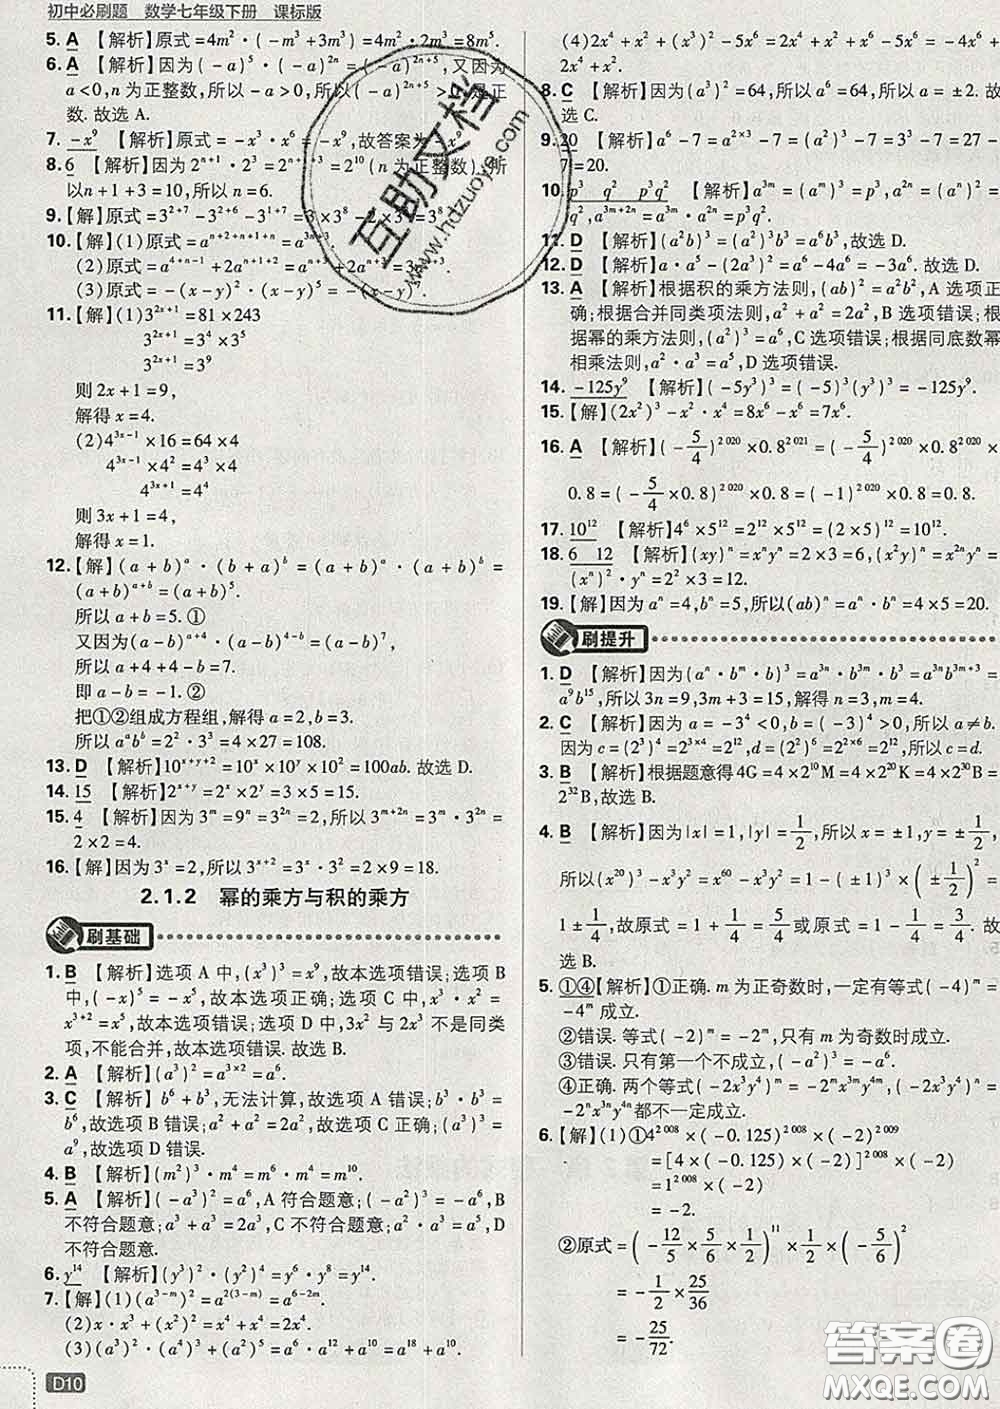 初中必刷题 数学七年级下册 课标版
5. A 【解析】原式=4m²·(-m³+3m³)=4m²·2m³=8m⁵.
6. A 【解析】因为(-a)⁵·(-a)²ⁿ=(-a)²ⁿ⁺⁵,又因为
a<0,n为正整数,所以-a>0,所以(-a)²ⁿ⁺⁵>0,是正
数.故选A.
7. -x⁹ 【解析】原式=-x³·x⁶=-x⁹,故答案为-x⁹.
8. 6 【解析】因为2ⁿ⁺¹·2³=2ⁿ⁺⁴=2¹⁰(n为正整数),所
以n+1+3=10,所以n=6.
9.【解】原式=3²⁺⁷-3²⁺⁶-3¹⁺⁷=3×3⁸-2×3⁸=3⁸.
10.【解】(1)原式=aⁿ⁺²⁺ⁿ⁺¹⁺ⁿ=a³ⁿ⁺³.
(2)原式=a⁴⁺ⁿ⁻¹+2aⁿ⁺¹⁺²=aⁿ⁺³+2aⁿ⁺³=3aⁿ⁺³.
(3)原式=-(x-y)²·(x-y)⁵=-(x-y)⁷.
11.【解】(1)3²ˣ⁺¹=81×243
3²ˣ⁺¹=3⁴×3⁵
3²ˣ⁺¹=3⁹
则2x+1=9,
解得x=4.
(2)4³ˣ⁻¹×16=64×4
4³ˣ⁻¹×4²=4³×4
4³ˣ⁺¹=4⁴
则3x+1=4,
解得x=1.
12.【解】(a+b)ᵃ·(b+a)ᵇ=(a+b)ᵃ·(a+b)ᵇ=
(a+b)ᵃ⁺ᵇ=(a+b)⁵.
所以a+b=5.①
又因为(a-b)ᵃ⁺⁴·(a-b)⁴⁻ᵇ=(a-b)⁷,
所以a+4+4-b=7.
即a-b=-1.②
把①②组成方程组,解得a=2,b=3.
所以aᵃbᵇ=2²·3³=4×27=108.
13. D 【解析】10ˣ⁺ʸ⁺²=10ˣ×10ʸ×10²=100ab.故选D.
14. 15 【解析】2ˣ⁺ʸ=2ˣ×2ʸ=3×5=15.
15. 4 【解析】因为3ᵐ=9ⁿ=3²ⁿ=2,所以3ᵐ⁺²ⁿ=3ᵐ·3²ⁿ
=2×2=4.
16.【解】因为3ˣ=2,所以3ˣ⁺²=3ˣ·3²=2×9=18.
2.1.2 幂的乘方与积的乘方
刷基础
1. B 【解析】选项A中,(x³)³=x⁹,故本选项错误;选项B
中,(-x)⁵=-x⁵,故本选项正确;选项C中,x³·x²=
x³⁺²=x⁵,故本选项错误;选项D中,3x²与2x³不是同类
项,不能合并,故本选项错误.故选B.
2. A 【解析】(a³)²=a³ˣ²=a⁶.
3. C 【解析】b⁶+b³,无法计算,故选项A错误;b³·b³=
b⁶,故选项B错误;a²+a²=2a²,故选项C正确;(a³)³=
a⁹,故选项D错误.
4. B 【解析】(m²)³·m⁴=m⁶·m⁴=m¹⁰.
5. A 【解析】(-a³)²=a⁶,A符合题意;(-a²)³=-a⁶,B
不符合题意;a³+a³=2a³,C不符合题意;a²·a³=a⁵,D
不符合题意.
6. y¹⁴ 【解析】(y³)²·(y²)⁴=y⁶·y⁸=y¹⁴.
7.【解】(1)(a³⁻ᵐ)²=a²⁽³⁻ᵐ⁾=a⁶⁻²ᵐ.
(2)x·x³+(x²)²=x⁴+x⁴=2x⁴.
(3)(a³)²·(a²)⁶·a⁵=a⁶·a¹²·a⁵=a²³.
D10
(4)2x⁴+x²+(x³)²-5x⁶=2x⁴+x²+x⁶-5x⁶=-4x⁶+
2x⁴+x².
8. C 【解析】因为(a³)²=64,所以a⁶=64,所以a=±2.故
选C.
9. 20 【解析】a⁶-7=a²ˣ³-7=(a²)³-7=3³-7=27-
7=20.
10. p³ q² p³q² 【解析】a³ᵐ=(aᵐ)³=p³,a²ⁿ=(aⁿ)²=
q²,a³ᵐ⁺²ⁿ=a³ᵐ·a²ⁿ=p³q².
11. D 【解析】(a²b)³=(a²)³b³=a⁶b³,故选D.
12. D 【解析】a·a⁵-(2a³)²=a⁶-4a⁶=-3a⁶.故选D.
13. A 【解析】根据积的乘方法则,(ab)²=a²b²,A选项正
确;根据合并同类项法则,a²+a²=2a²,B选项错误;根
据幂的乘方法则,(a²)³=a⁶,C选项错误;根据同底数幂
相乘法则,a²·a³=a⁵,D选项错误.
14. -125y⁹ 【解析】(-5y³)³=(-5)³(y³)³=-125y⁹.
15.【解】(2x²)³-x²·x⁴=8x⁶-x⁶=7x⁶.
16. A 【解析】(-5/4)²⁰²⁰×0.8²⁰²¹=(-5/4)²⁰²⁰×0.8²⁰²⁰×
0.8=(-5/4×0.8)²⁰²⁰×0.8=(-1)²⁰²⁰×0.8=0.8.
17. 10¹² 【解析】4⁶×5¹²=2¹²×5¹²=(2×5)¹²=10¹².
18. 6 12 【解析】(xy)ⁿ=xⁿyⁿ=2×3=6,(x²y)ⁿ=x²ⁿyⁿ=
(xⁿ)²·yⁿ=2²×3=12.
19.【解】因为aⁿ=4,bⁿ=5,所以(ab)ⁿ=aⁿ·bⁿ=4×5=20.
刷提升
1. D 【解析】因为(aⁿ·bᵐ·b)³=a³ⁿ·b³ᵐ·b³=a³ⁿb³ᵐ⁺³=
a⁹b¹⁵,所以3n=9,3m+3=15,解得n=3,m=4.
2. C 【解析】因为a=-3⁴<0,b=(-3)⁴>0,所以a≠b.
因为c=(2³)⁴=2³ˣ⁴=2¹²,d=(2²)⁶=2²ˣ⁶=2¹²,所以c=d.
3. B 【解析】根据题意得4G=4×2¹⁰M=4×2²⁰K=4×2³⁰B=
2³²B,故选B.
4. B 【解析】因为|x|=1,|y|=1/2,所以x=±1,y=±1/2,
所以(x²⁰)³-x³y²=x⁶⁰-x³y²=1-(±1)³×(±1/2)²=
1±1/4,故原式=1+1/4=5/4或原式=1-1/4=3/4.故
选B.
5. ①④【解析】①正确.m为正奇数时,一定有等式(-4)ᵐ=
-4ᵐ成立.
②错误.等式(-2)ᵐ=-2ᵐ,只有m为奇数时成立.
③错误.只有第一个不成立,(-a²)³=-a⁶.
④正确.两个等式(-2x³y⁴)ᵐ=-2ᵐx³ᵐy⁴ᵐ,(-2x³y⁴)ⁿ=
-2ⁿx³ⁿy⁴ⁿ都不一定成立.
6.【解】(1)①4²⁰⁰⁸×(-0.125)²⁰⁰⁸×(-2)²⁰⁰⁹
=[4×(-0.125)×(-2)]²⁰⁰⁸×(-2)
=1²⁰⁰⁸×(-2)
=-2.
②原式=(-12/5×5/6×1/2)¹¹×1/2×(-5/6)²
=-1/2×25/36
=-25/72.
互助文档
www.hdzuoye.com
答案圈
MXQE.COM